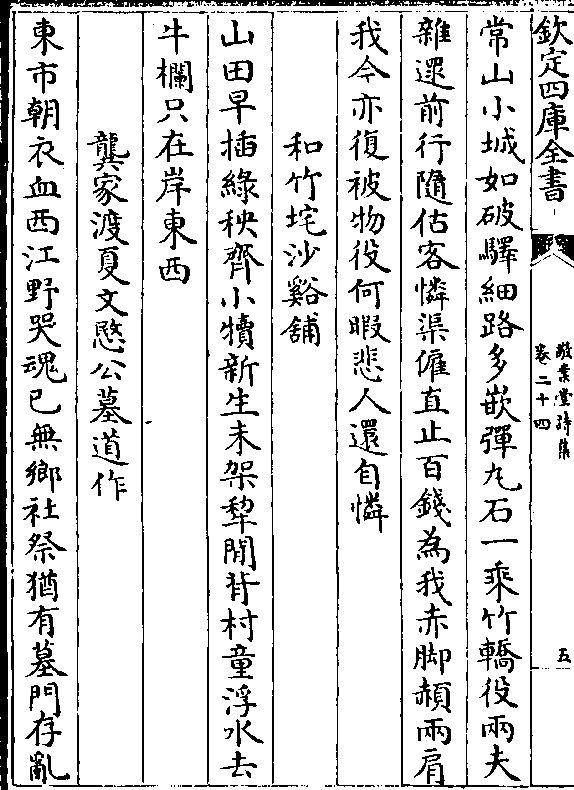 欽定四庫全書
敬業堂詩集
卷二十四
五
常山小城如破驛細路多嵌彈丸石一乘竹轎役兩夫
雜遝前行隨估客憐渠僱直止百錢為我赤脚赬兩肩
我今亦復被物役何暇悲人還自憐
和竹垞沙谿舖
山田早插綠秧齊小犢新生未架犂閒背村童浮水去
牛欄只在岸東西
龔家渡夏文愍公墓道作
東市朝衣血西江野哭魂已無鄉社祭猶有墓門存亂